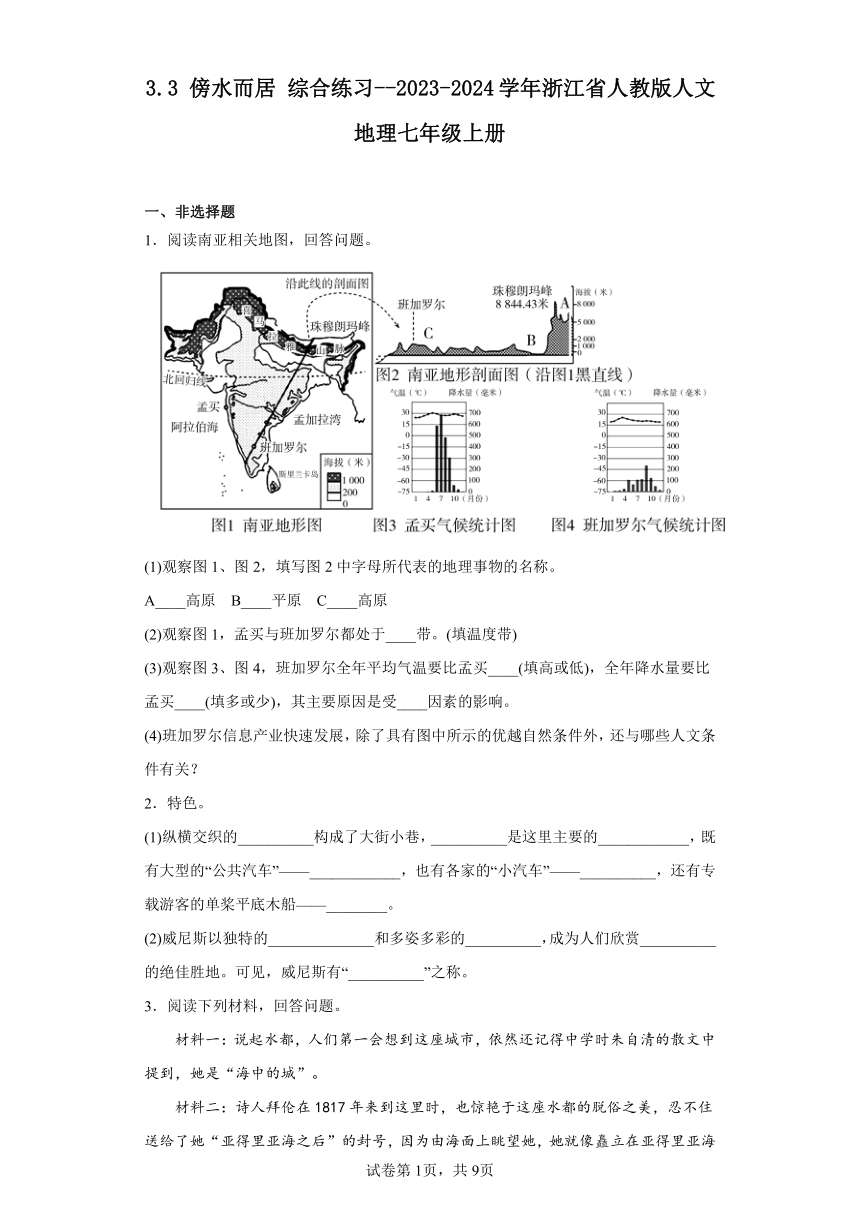 3.3 傍水而居 综合练习--2023-2024学年浙江省人教版人文
地理七年级上册
一、非选择题
1．阅读南亚相关地图，回答问题。
沿此线的剖面图
喜
马
拉
雅
山
脉
珠穆朗玛峰
北回归线
孟买
阿拉伯海
孟加拉湾
班加罗尔
斯里兰卡岛
海拔（米）
1 000
200
0
图1 南亚地形图
珠穆朗玛峰
8 844.43米
班加罗尔
A
B
C
海拔（米）
8 000
5 000
2 000
1 000
0
图2 南亚地形剖面图（沿图1黑直线）
气温（℃） 降水量（毫米）
30 700
15 600
0 500
-15 400
-30 300
-45 200
-60 100
-75 0
1 4 7 10（月份）
图3 孟买气候统计图
气温（℃） 降水量（毫米）
30 700
15 600
0 500
-15 400
-30 300
-45 200
-60 100
-75 0
1 4 7 10（月份）
图4 班加罗尔气候统计图
(1)观察图1、图2，填写图2中字母所代表的地理事物的名称。
A____高原 B____平原 C____高原
(2)观察图1，孟买与班加罗尔都处于____带。(填温度带)
(3)观察图3、图4，班加罗尔全年平均气温要比孟买____(填高或低)，全年降水量要比
孟买____(填多或少)，其主要原因是受____因素的影响。
(4)班加罗尔信息产业快速发展，除了具有图中所示的优越自然条件外，还与哪些人文条
件有关？
2．特色。
(1)纵横交织的__________构成了大街小巷，__________是这里主要的____________，既
有大型的“公共汽车”——____________，也有各家的“小汽车”——__________，还有专
载游客的单桨平底木船——________。
(2)威尼斯以独特的______________和多姿多彩的__________，成为人们欣赏__________
的绝佳胜地。可见，威尼斯有“__________”之称。
3．阅读下列材料，回答问题。
材料一：说起水都，人们第一会想到这座城市，依然还记得中学时朱自清的散文中
提到，她是“海中的城”。
材料二：诗人拜伦在1817年来到这里时，也惊艳于这座水都的脱俗之美，忍不住
送给了她“亚得里亚海之后”的封号，因为由海面上眺望她，她就像矗立在亚得里亚海
试卷第1页，共9页